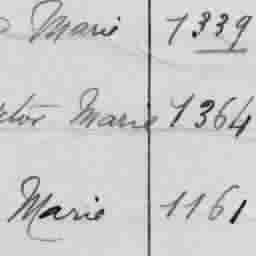 Marie 1339
Marie 1364
Marie 1161